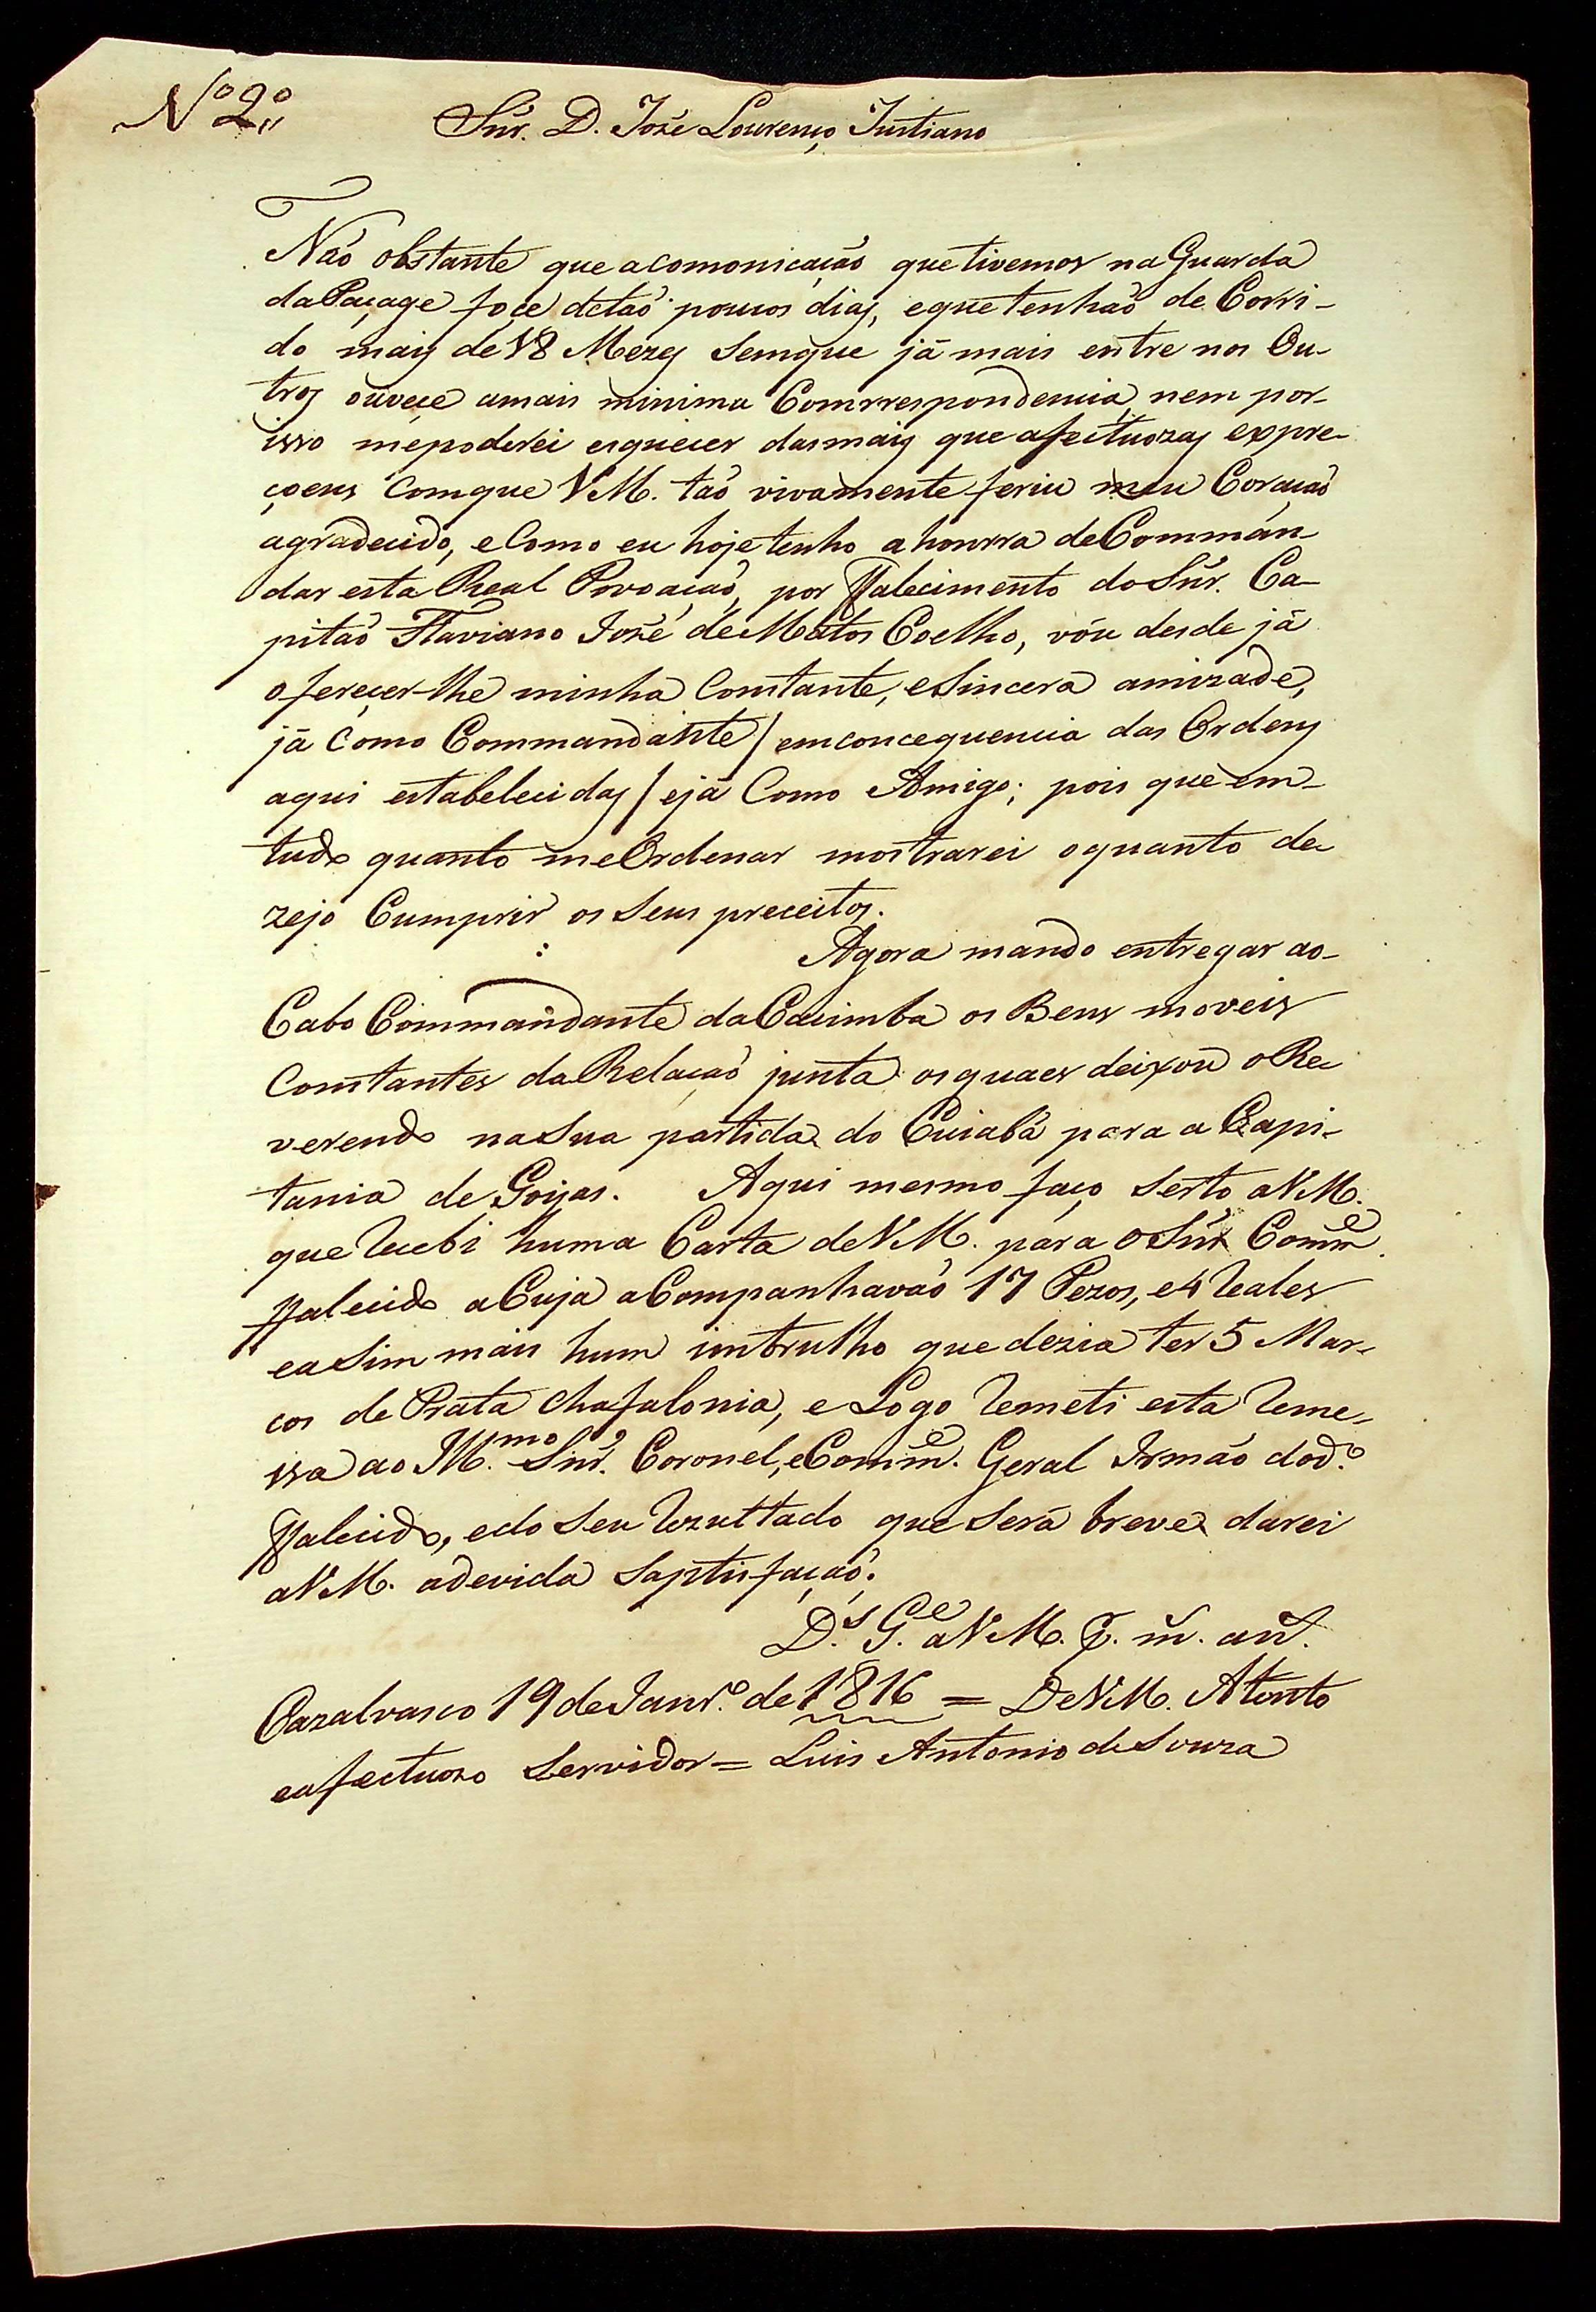 Nº 2º
Snr. D. Joze Lourenço Justiano
Naõ obstante que acomonicaçaõ que tivemos na Guarda
da Paçage foçe detaõ poucos dias, eque tenhaõ de Corri-
do mais de 18 Mezes Semque já mais entre nos Ou-
tros ouvece amais minima Comrrespondencia, nem por-
isso mepoderei esquecer das mais que afectuozas expre-
çoens Comque VM. taõ vivamente feriu meu Coraçaõ
agradecido, eComo eu hoje tenho ahonrra deCommán-
dar esta Real Povoaçaõ, por ffalecimento do Snr. Ca-
pitaõ Flaviano Jozé de Mattos Coelho, vóu desde já
ofereçer-lhe minha Constante, eSincera amizade,
já Como Commandante / emconcequencia das Ordens
aqui estabelecidas / ejá Como Amigo; pois que em-
tudo quanto meOrdenar mostrarei oquanto de-
zejo Cumprir os Seus preceitos.
Agora mando entregar ao-
Cabo Commandante da Cacimba os Bens moveis
Constantes da Relaçaõ junta osquaes deixou oRe-
verendo naSua partida do Cuiabá para a Capi-
tania de Goijas. Aqui mesmo faço Serto aVM.
que Recebi huma Carta deVM. para oSnr Comm.e
ffalecido aCuja aCompanhavaõ 17 Pezos, e4 Reales
eaSim mais hum imbrulho que dezia ter 5 Mar-
cos de Prata Chafalonia, e Logo Remeti esta Reme-
ssa ao Ill.mo Snr. Coronel, eComm.e Geral Irmaõ dod.º
ffalecido, edo Seu Rezultado que Será breve darei
aVM. adevida Saptisfaçaõ.
D.s G.e aVM. p. m. an.
Cazalvasco 19 de Janr.º de 1816 = DeVM. Atento
eafectuozo Servidor = Luis Antonio de Souza